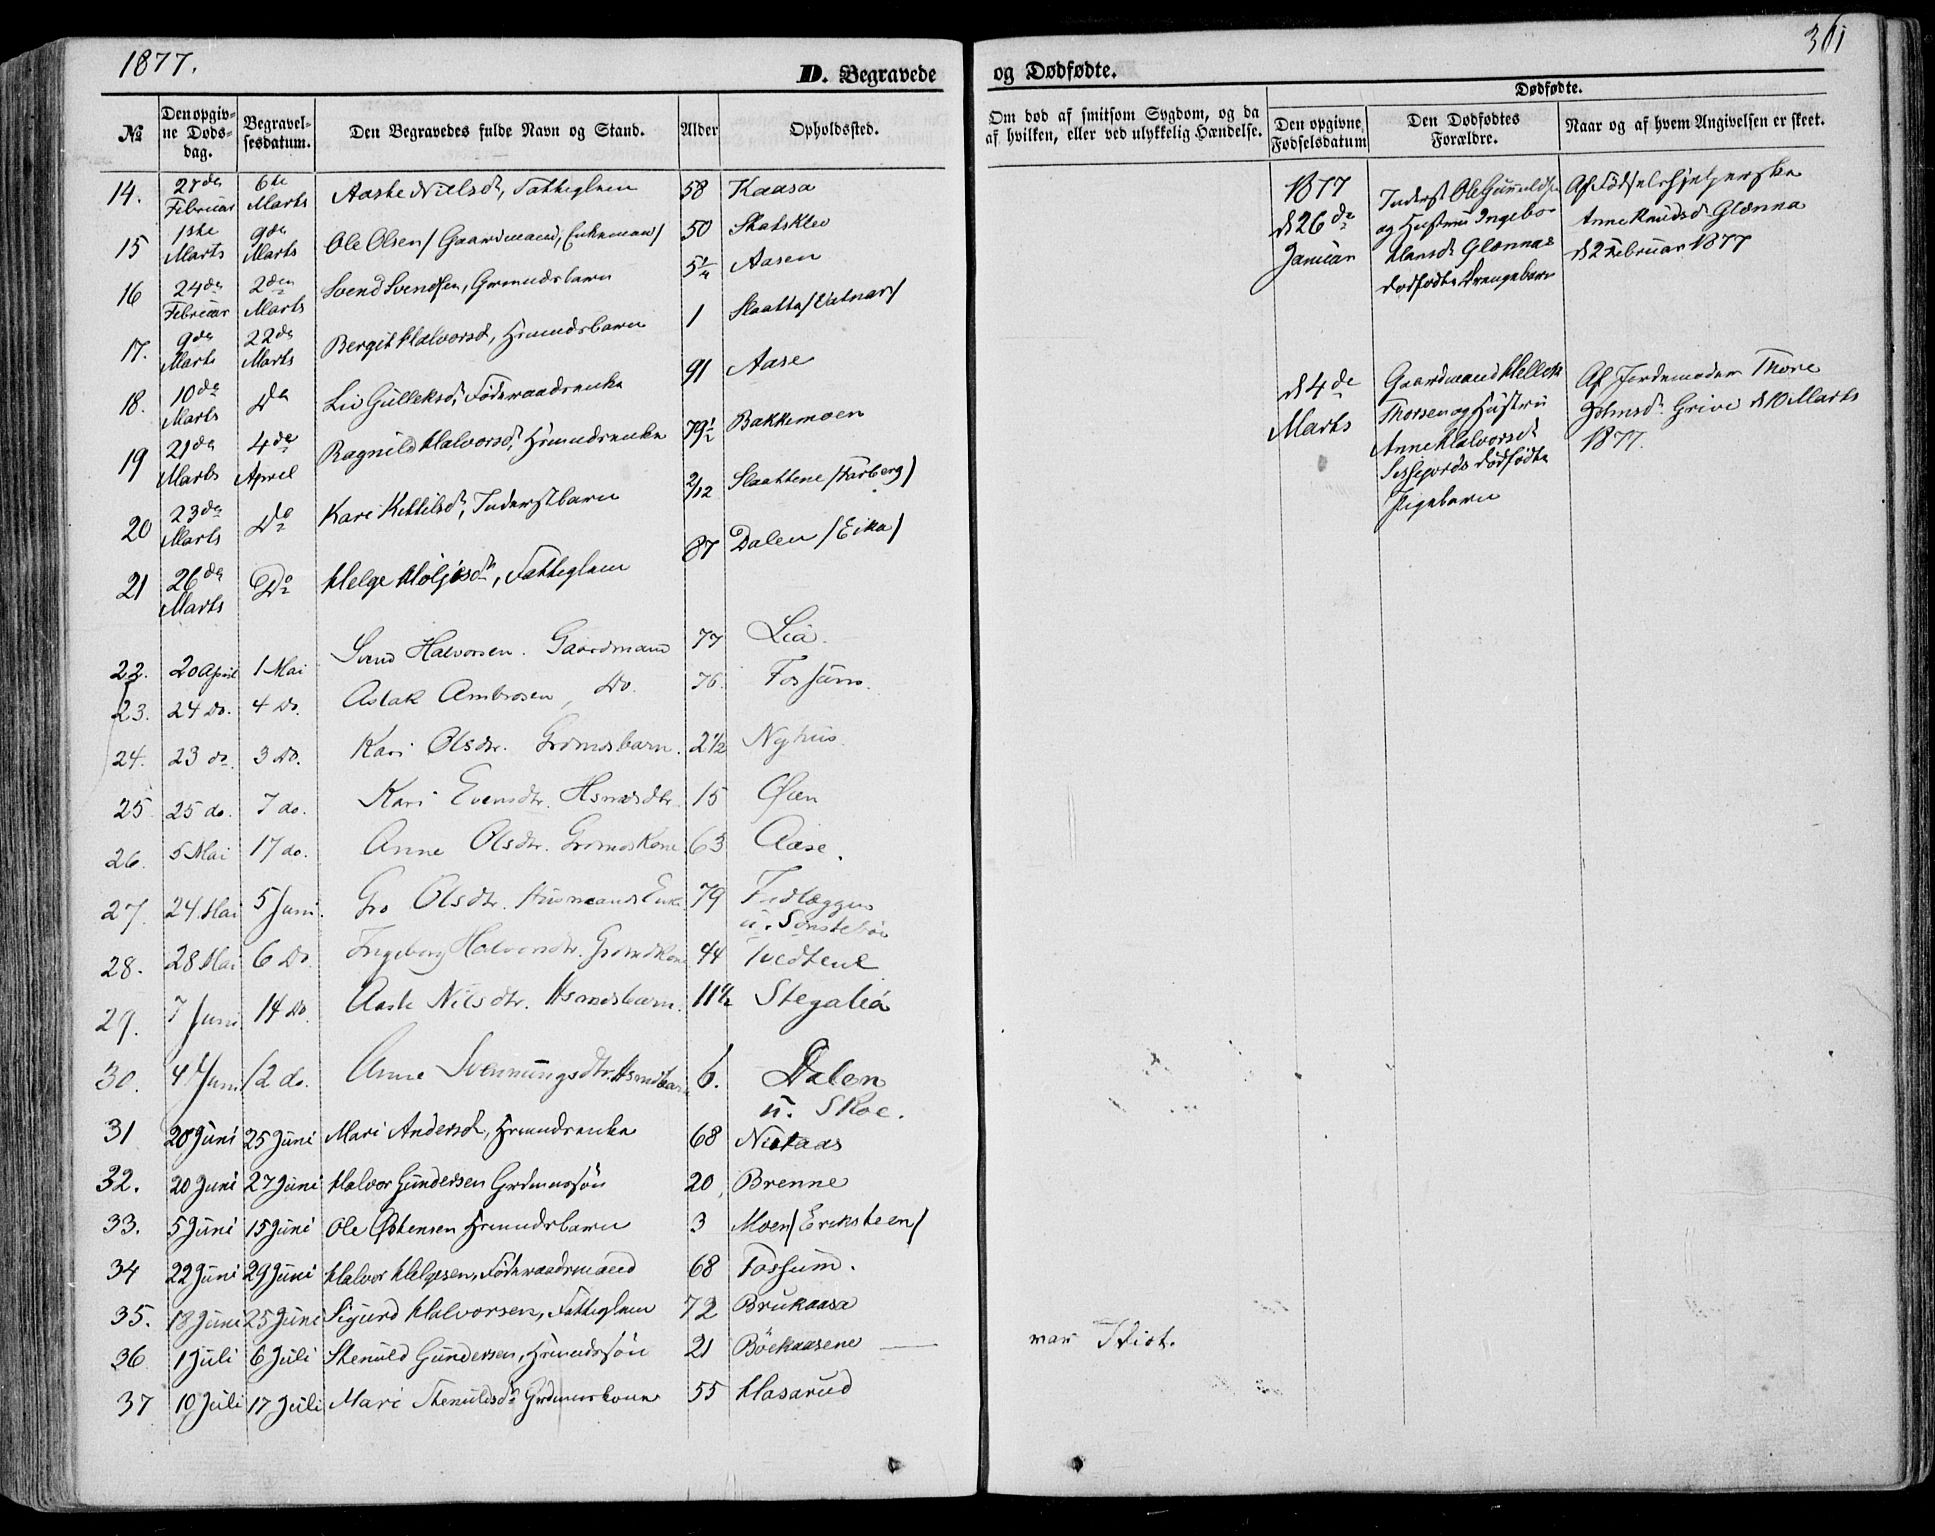 1877.
D. Begravede
og Dødfødte.
361
№
Den opgivne Dødsdag.
Begravelsesdatum.
Den Begravedes fulde Navn og Stand.
Alder
Opholdssted.
Om død af smitsom Sygdom, og da af hvilken, eller ved ulykkelig Hændelse.
Dødfødte.
Den opgivne Fødselsdatum
Den Dødfødtes Forældre.
Naar og af hvem Angivelsen er skeet.
14. 27de Februar 6te Marts Aaste Nielsd., Fattiglem 58 Kaasa
15 1ste Marts 9de Marts Ole Olsen / Gaardmand, Enkemand / 50 Skatsklev
16 24de Februar 2den Marts Svend Svendsen, Grmndsbarn 5 1/4 Aasen
17. 9de Marts 22de Marts Bergit Halvorsd., Hrmndsbarn 1 Slaatta / Vatnar /
18. 10de Marts Do Liv Gulleksd., Föderaadsenke 91 Aase
19 21de Marts 4de April Ragnild Halvorsd., Hrmndsenke 79 1/2 Bakkemoen
20 23de Marts Do Kari Kittilsd., Inderstbarn 2/12 Slaattene / Farberg /
21 26de Marts Do Helge Holjesdr., Fattiglem 87 Dalen / Eika /
22. 20 April 1 Mai Svend Halvorsen. Gaardmand 77 Lia.
23. 24 Do. 4 Do. Aslak Ambrosen, Do. 76. Fossum.
24. 23 do. 3 Do. Kari Olsdtr. Grdmdsbarn. 2 1/2 Nyhus
25 25 do. 7 do. Kari Evensdtr. Hsmdsdtr. 15 Öien
26. 5 Mai 17 do. Anne Olsdtr. Grdmdskone 63 Aase.
27. 24 Mai 5 Juni. Gro Olsdtr. Husmands Enke 79
u. Sönstebö
28. 28 Mai 6 Do Ingeborg Halvorsdtr. Grdmdkone 44 Tvedtene
29. 7 Juni 14 Do. Aaste Nilsdtr. Hsmdsbarn. 11 1/2 Stegalia
30. 4 Juni 12 do. Anne Svenningsdtr. Hsmdbarn 6. Dalen
u. Skoe.
31 20 Juni 25 Juni Mari Andersd., Hrmndsenke 68 Nistaas
32. 20 Juni 27 Juni Halvor Gundersen Grdmndssön 20 Brenne
33. 5 Juni 15 Juni Ole Östensen Hrmndsbarn 3 Moen / Eriksteen /
34 22 Juni 29 Juni Halvor Helgesen, Föderaadsmand 68 Fossum.
35. 18 Juni 25 Juni Sigurd Halvorsen, Fattiglem 72 Brukaasa
36 1 Juli 6 Juli Stenuld Gundersen, Hrmndssön 21 Bökaasene — var Idiot.
37 10 Juli 17 Juli Mari Stenuldsdr. Grdmndskone 55 Hasarud
1877
d 26de Januar
Inderst Ole Gunuldsen
og Hustru Ingebor
Hansd. Glennas
dødfødte Drengebarn
Af Födselshjelperske
Anne Knudsd. Glenna
d 2 Februar 1877
d 4de Marts
Gaardmand Hellek
Thorsen og Hustru
Anne Halvorsd.
dødfødte
Pigebarn
Af Jordemoder Thore
Johnsd. Grivi d 10 Marts
1877.